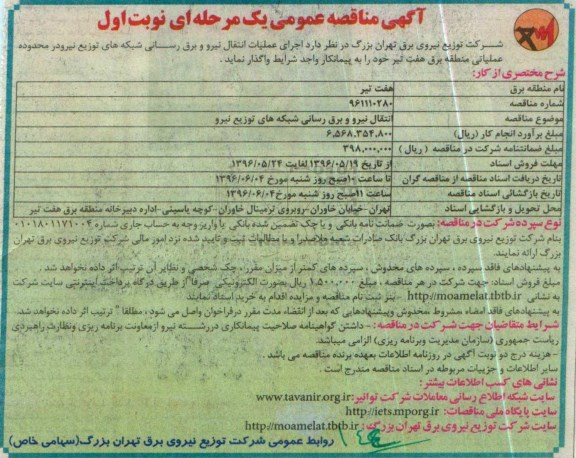 آگهی مناقصه عمومی یک مرحله ای نوبت اول
شرکت توزیع نیروی برق تهران بزرگ در نظر دارد اجرای عملیات انتقال نیرو و برق رسانی شبکه های توزیع نیرو در محدوده
عملیاتی منطقه برق هفت تیر خود را به پیمانکار واجد شرایط واگذار نماید .
شرح مختصری از کار:
نام منطقه برق هفت تیر
شماره مناقصه ۹۶۱۱۱۰۲۸۰
موضوع مناقصه انتقال نیرو و برق رسانی شبکه های توزیع نیرو
مبلغ برآورد انجام کار (ریال) ۶,۵۶۸,۳۵۴,۸۰۰
مبلغ ضمانتنامه شرکت در مناقصه ( ریال ) ۳۹۸,۰۰۰,۰۰۰
مهلت فروش اسناد از تاریخ ۱۳۹۶/۰۵/۱۹ لغایت ۱۳۹۶/۰۵/۲۴
تاریخ دریافت اسناد مناقصه از مناقصه گران تا ساعت ۱۰صبح روز شنبه مورخ ۱۳۹۶/۰۶/۰۴
تاریخ بازگشائی اسناد مناقصه ساعت ۱۱صبح روز شنبه مورخ ۱۳۹۶/۰۶/۰۴
محل تحویل و بازگشایی اسناد تهران -خیابان خاوران-روبروی ترمینال خاوران-کوچه یاسینی-اداره دبیرخانه منطقه برق هفت تیر
نوع سپرده شرکت در مناقصه: بصورت ضمانت نامه بانکی و یا چک تضمین شده بانکی یا واریز وجه به حساب جاری شماره ۰۱۰۱۸۰۱۱۷۱۰۰۴
بنام شرکت توزیع نیروی برق تهران بزرگ بانک صادرات شعبه ملاصدرا و یا مطالبات ثبت و تایید شده نزد امور مالی شرکت توزیع نیروی برق تهران
بزرگ ارائه نمایند.
به پیشنهادهای فاقد سپرده ، سپرده های مخدوش ، سپرده های کمتر از میزان مقرر، چک شخصی و نظایر آن ترتیب اثر داده نخواهد شد .
مبلغ فروش اسناد: جهت شرکت در هر مناقصه ، مبلغ ۱,۵۰۰,۰۰۰ ریال بصورت الکترونیکی صرفاً از طریق درگاه پرداخت اینترنتی سایت شرکت
به نشانی http://moamelat.tbtb.ir -بنر ثبت نام مناقصه و مزایده اقدام به خرید اسناد نمایند.
به پیشنهادهای فاقد امضاء ،مشروط ،مخدوش وپیشنهادهایی که بعد از انقضاء مدت مقرر درفراخوان واصل می شود، مطلقا " ترتیب اثر داده نخواهد شد.
شرایط متقاضیان جهت شرکت در مناقصه: - داشتن گواهینامه صلاحیت پیمانکاری دررشته نیرو ازمعاونت برنامه ریزی ونظارت راهبردی
ریاست جمهوری (سازمان مدیریت وبرنامه ریزی) الزامی میباشد.
- هزینه درج دو نوبت آگهی در روزنامه اطلاعات بعهده برنده مناقصه می باشد .
سایر اطلاعات و جزییات مربوطه در اسناد مناقصه مندرج است .
نشانی های کسب اطلاعات بیشتر:
سایت شبکه اطلاع رسانی معاملات شرکت توانیر: www.tavanir.org.ir
سایت پایگاه ملی مناقصات: http://iets.mporg.ir
سایت شرکت توزیع نیروی برق تهران بزرگ : http://moamelat.tbtb.ir
روابط عمومی شرکت توزیع نیروی برق تهران بزرگ(سهامی خاص)